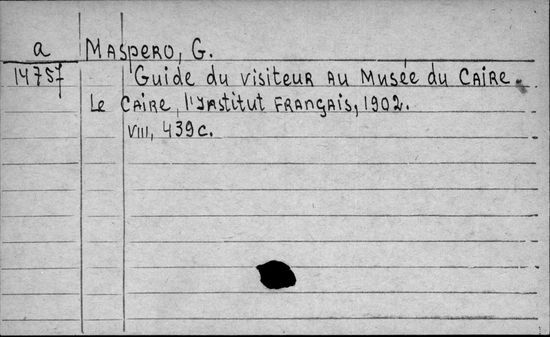 a MASPERO, G.
14757 Guide du visiteur au Musée du Caire.
Le Caire, l'Institut Français, 1902.
VIII, 439c.